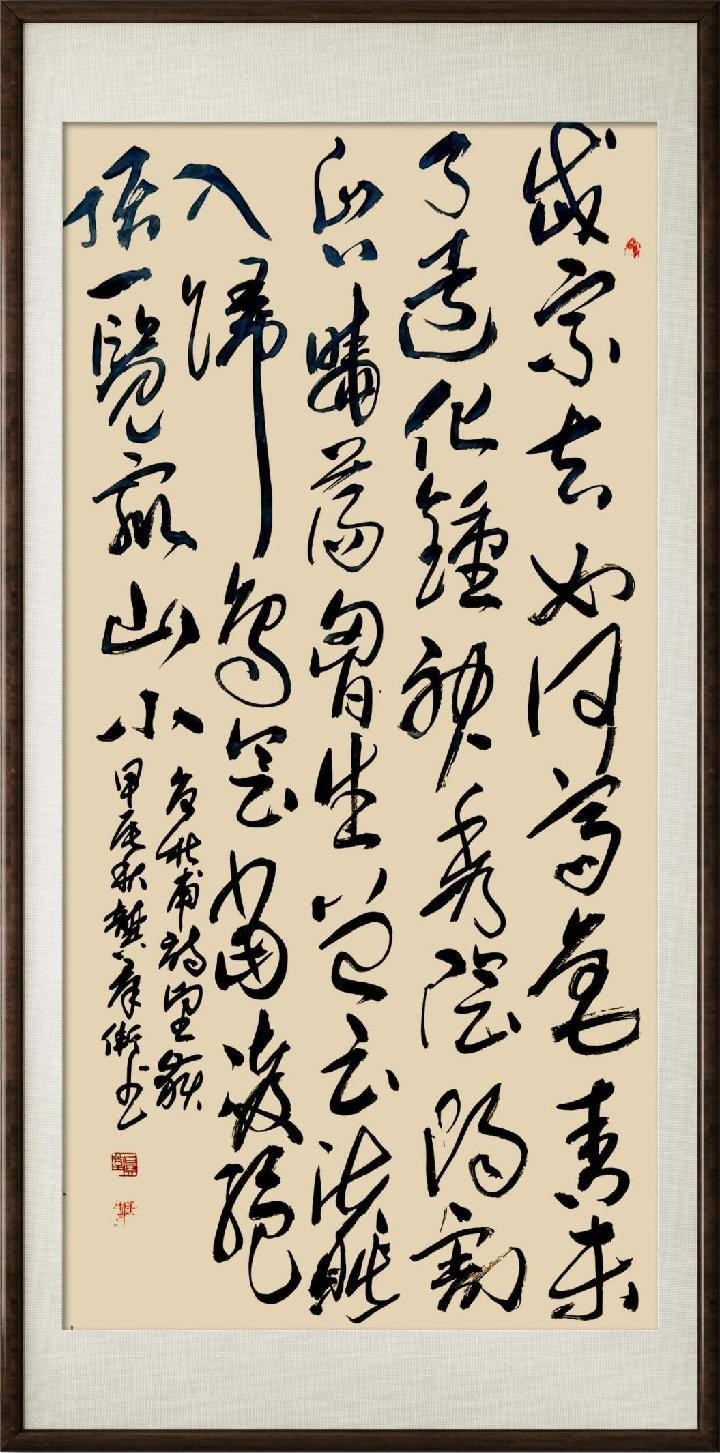 岱宗夫如何齊魯青未
了造化鍾神秀陰陽割
昏曉蕩胷生曾云決眦
入歸鳥會當凌絕
頂一覽衆山小
杜甫詩望嶽
甲辰秋龔衛書